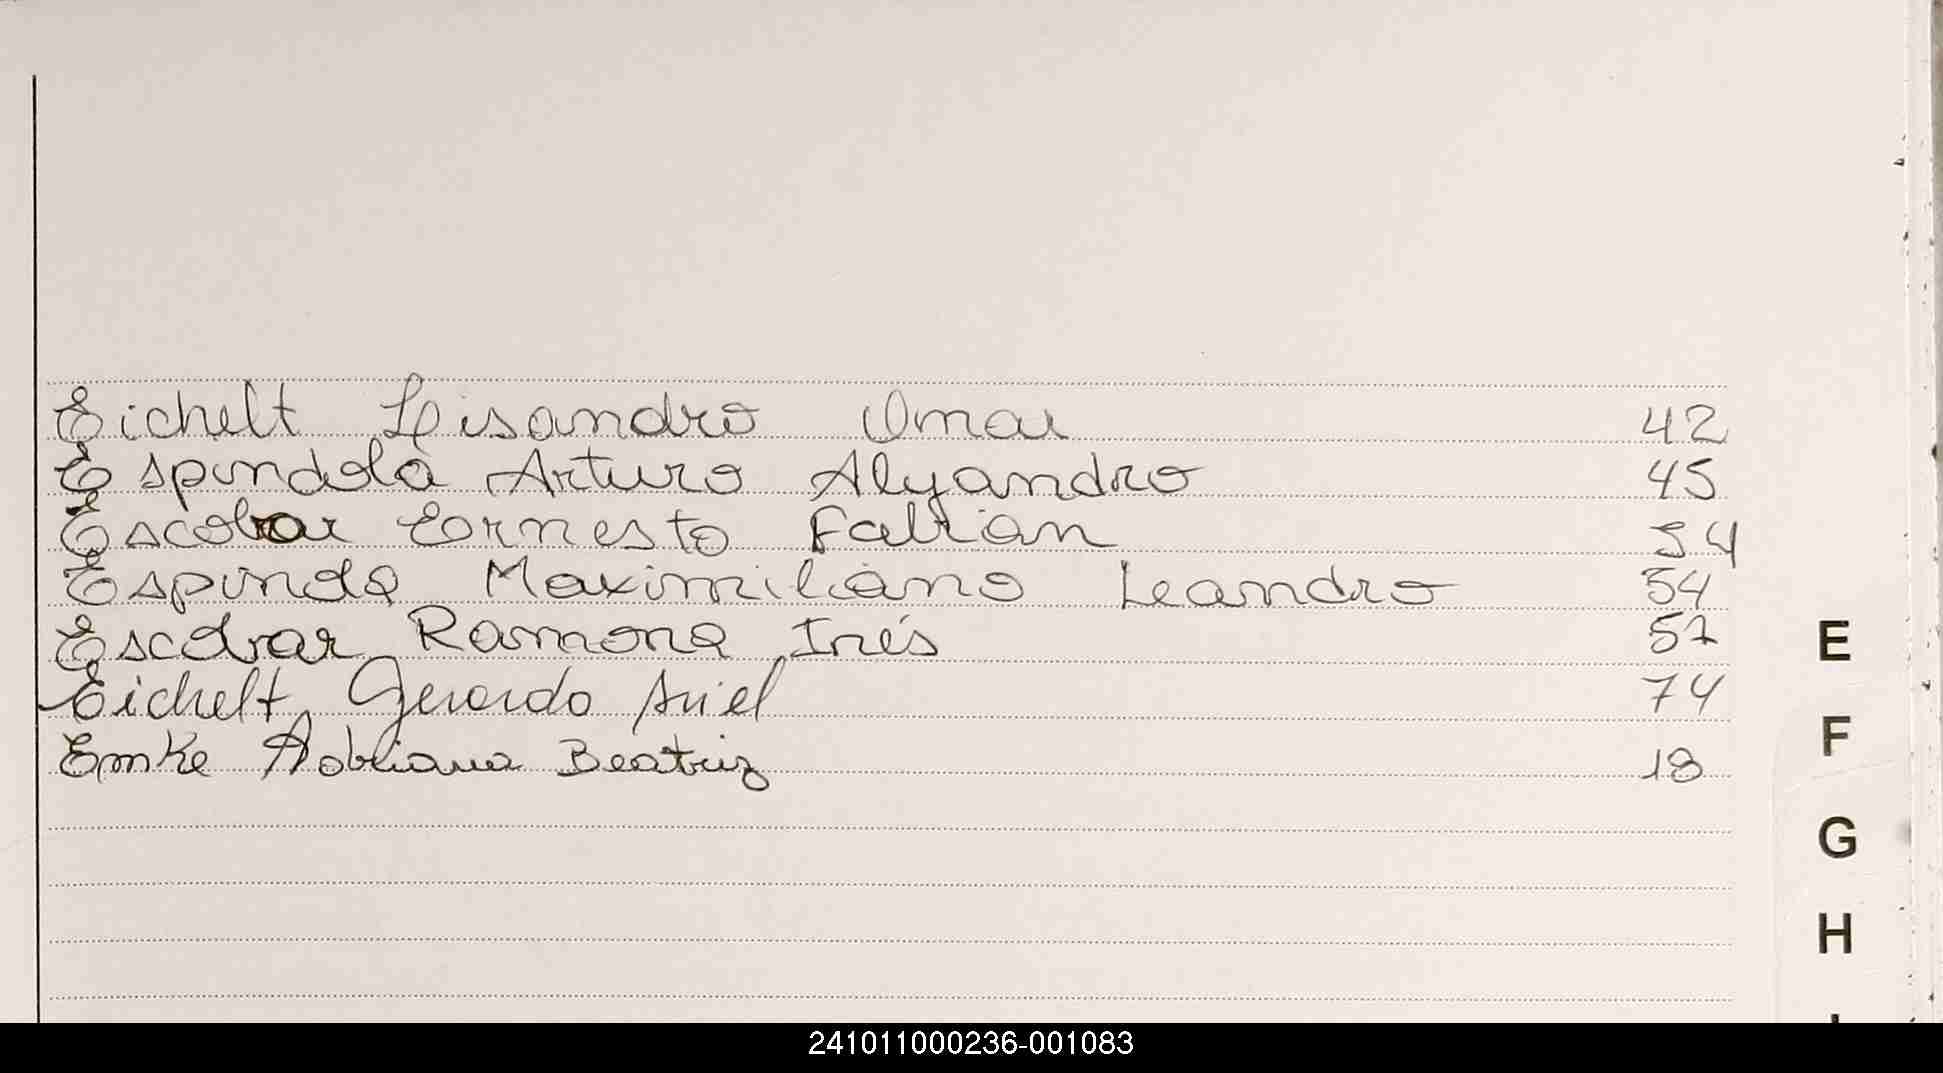 Eichelt Lisandro Omar 42
Espindola Arturo Alejandro 45
Escobar Ernesto Fabian 54
Espinda Maximiliano Leandro 54
Escobar Ramona Inés 57
Eichelt Gerardo Ariel 74
Emke Adriana Beatriz 18
E
F
G
H
241011000236-001083